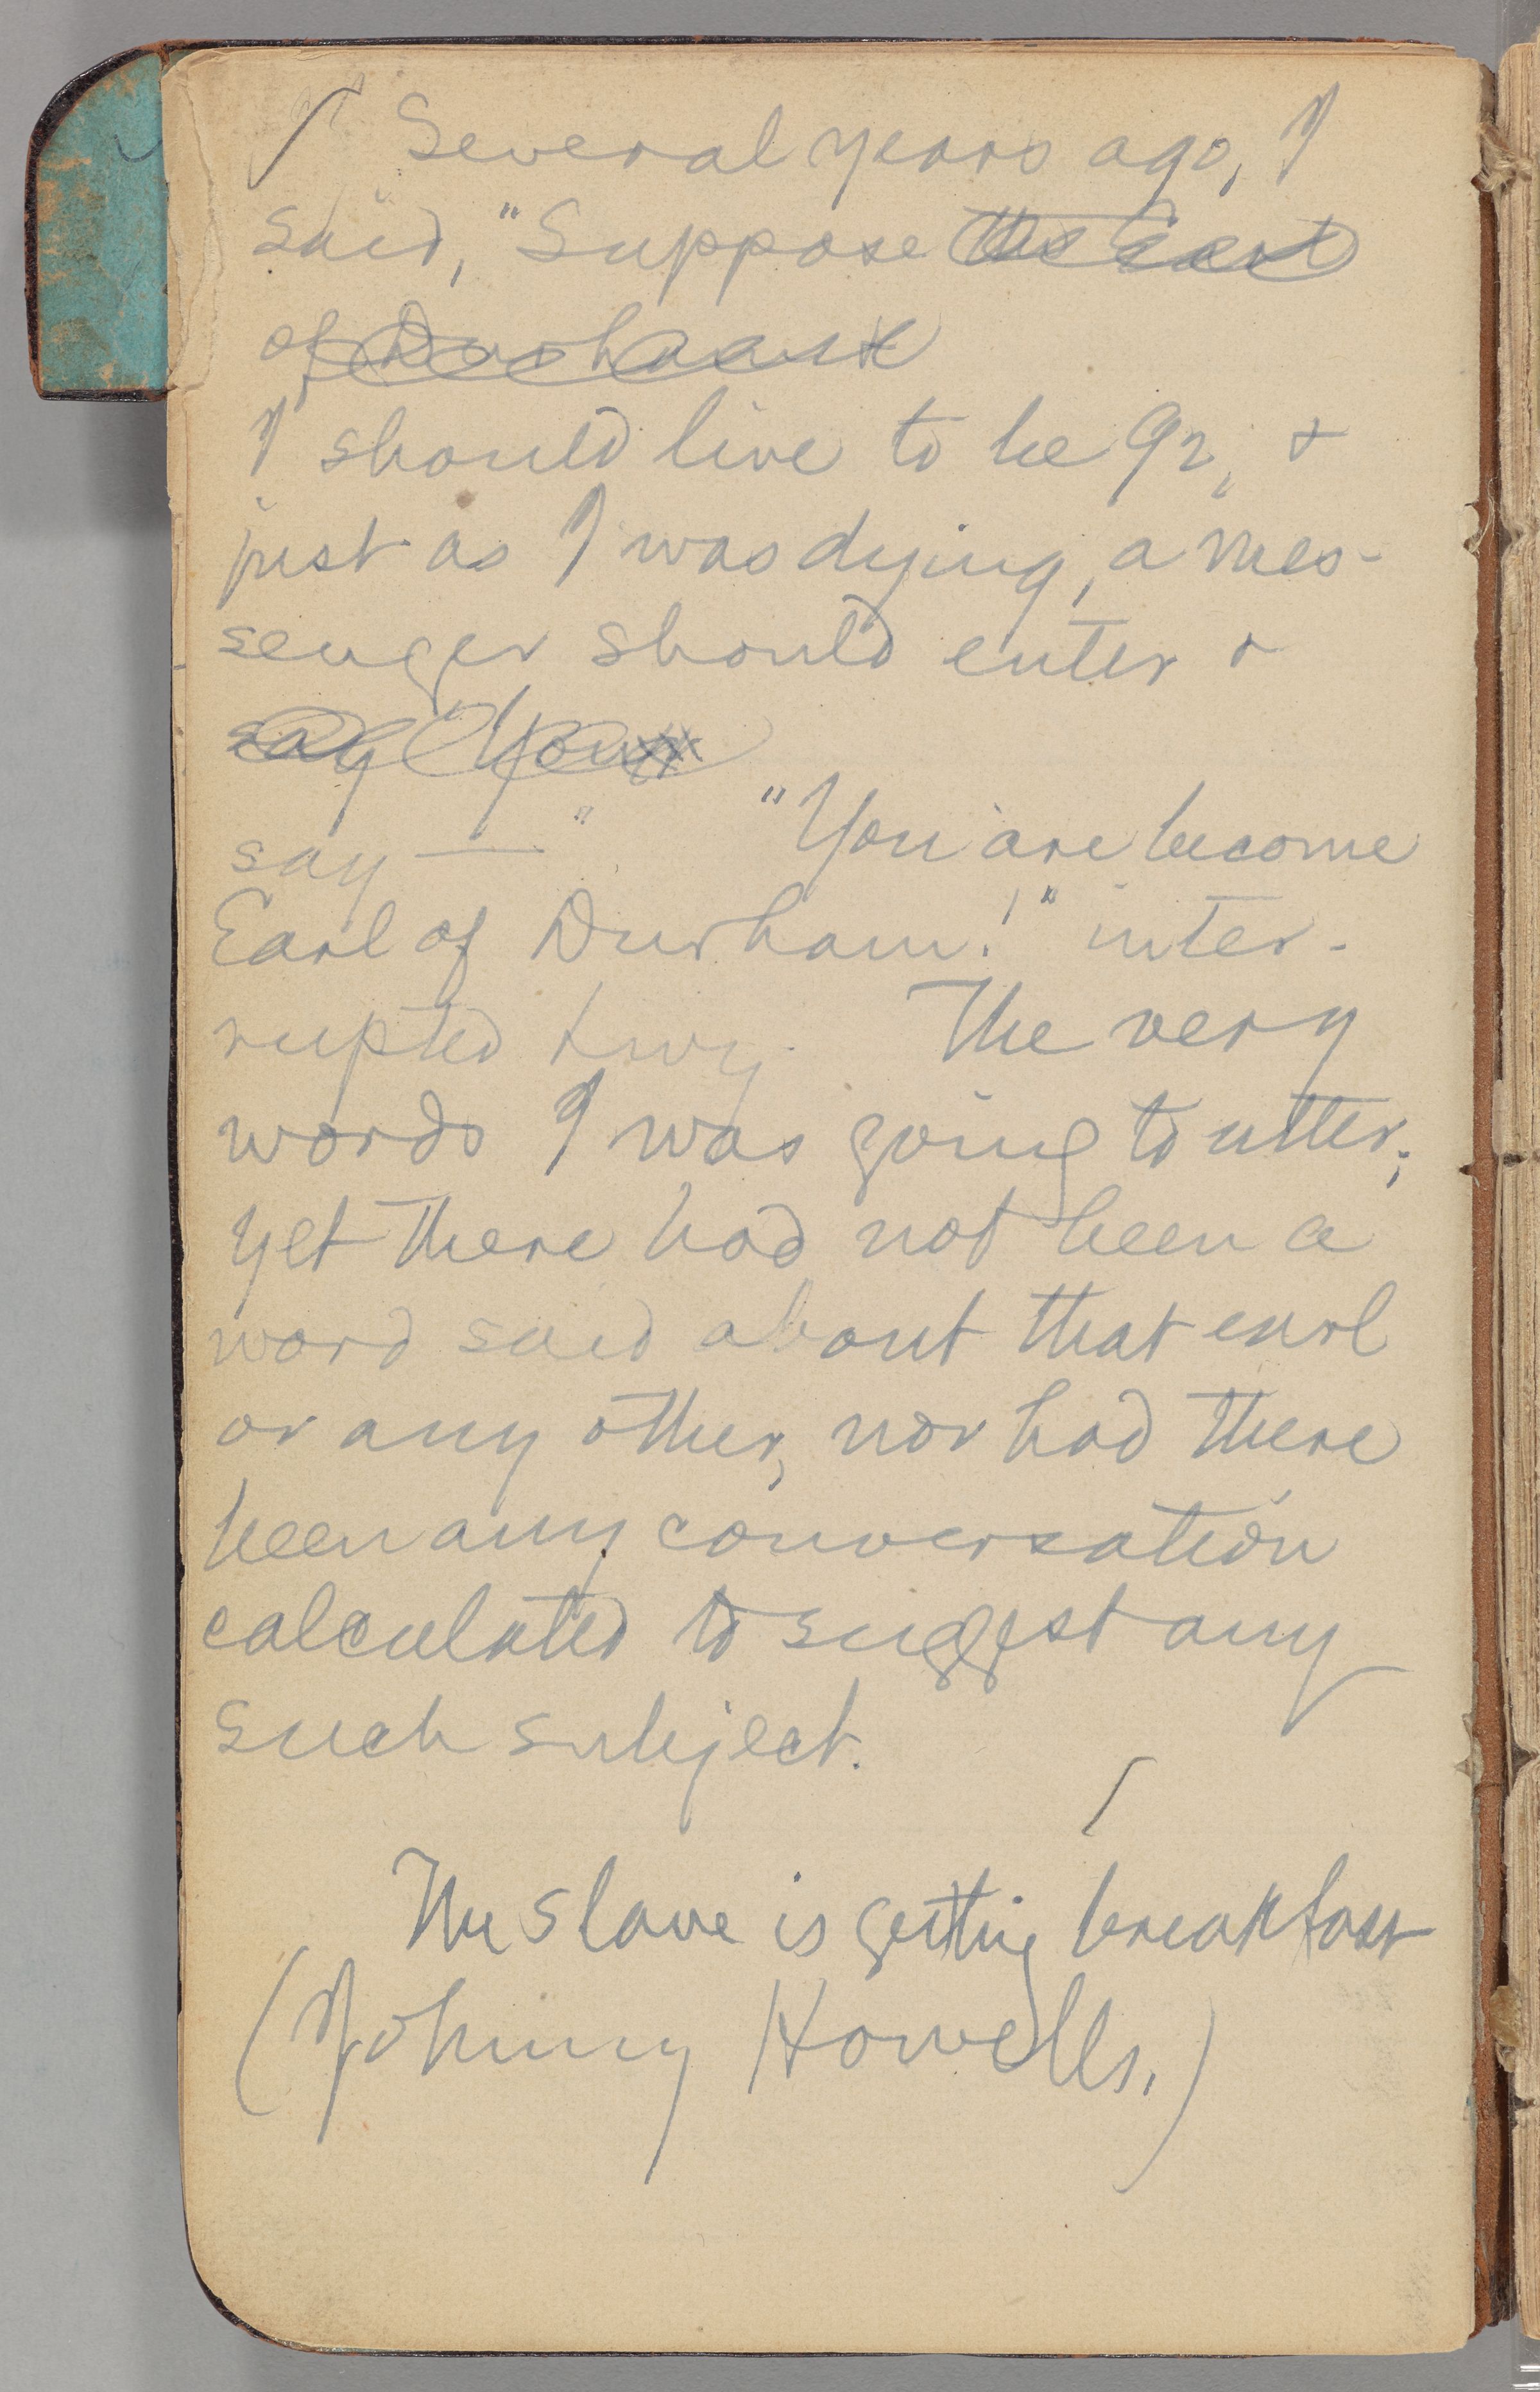 Several years ago, I
said, "Suppose the Earl
of Durham
I should live to be 92, &
just as I was dying, a mes-
senger should enter &
say You
say — " "You are become
Earl of Durham!" inter-
rupted Livy. The very
words I was going to utter;
yet there had not been a
word said about that earl
or any other, nor had there
been any conversation
calculated to suggest any
such subject.
The slave is getting breakfast
(Johnny Howells.)